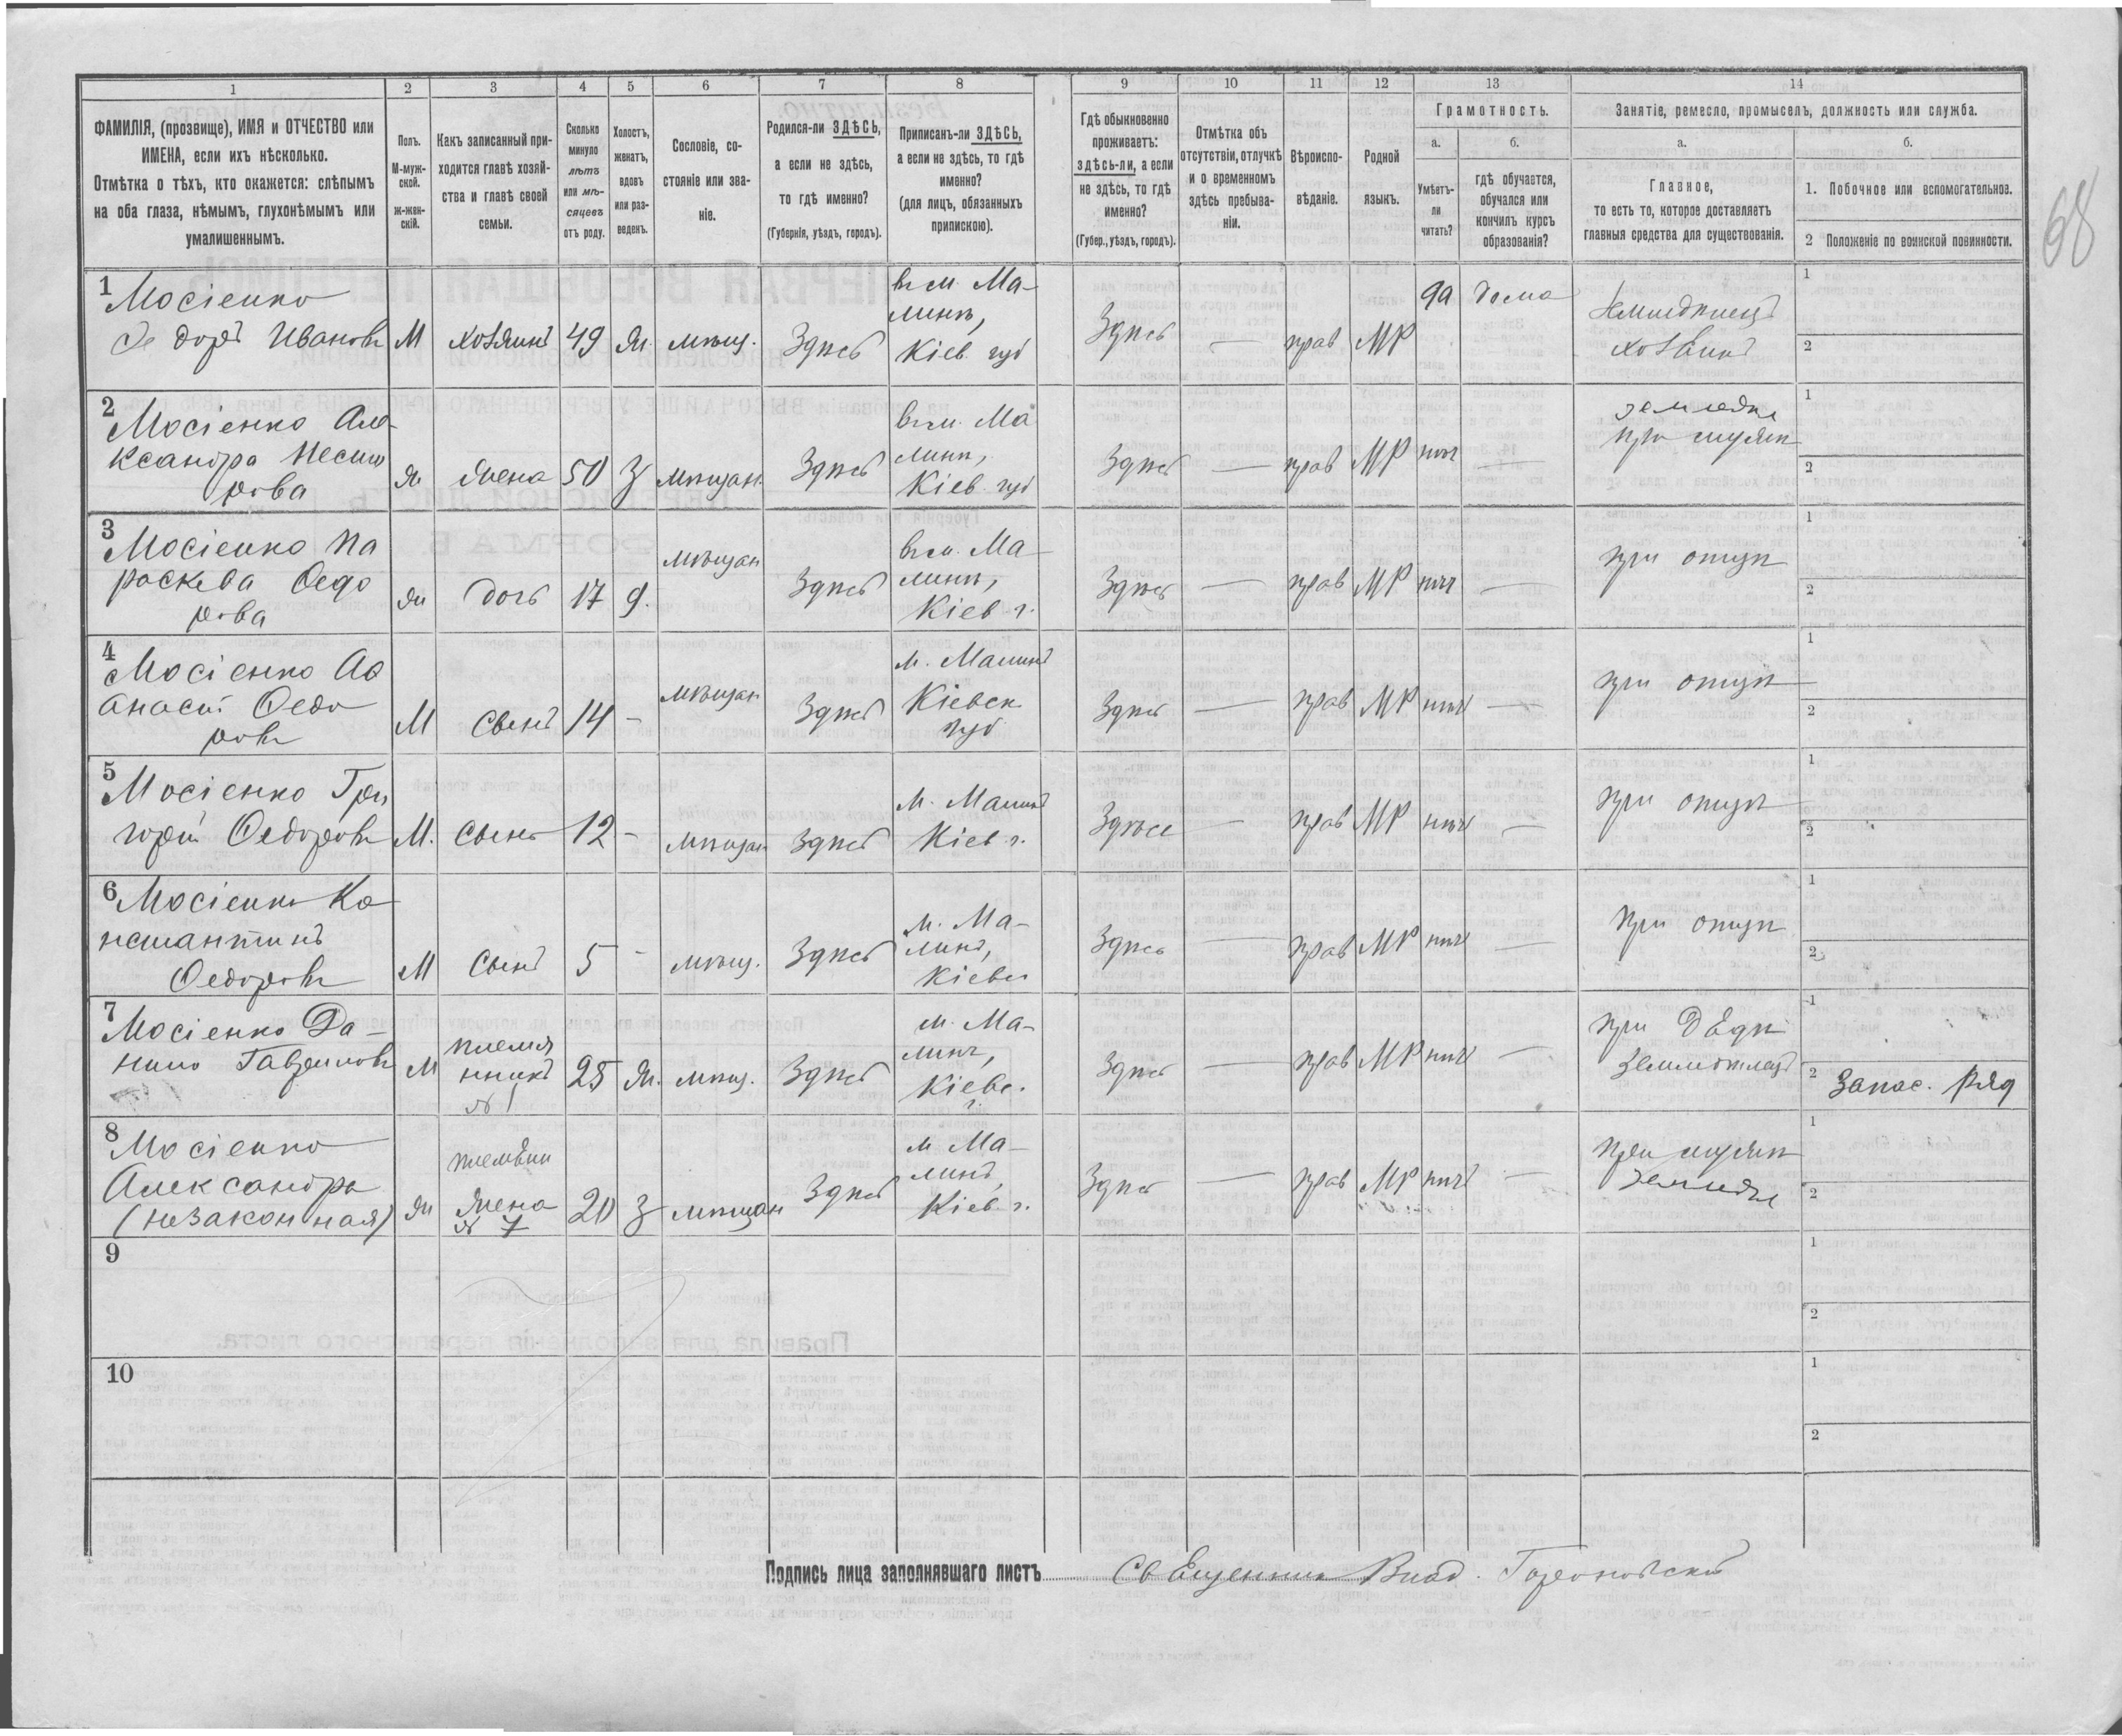 1
2
3
4
5
6
7
8
9
10
11
12
13
14
ФАМИЛІЯ, (прозвище), ИМЯ и ОТЧЕСТВО или
ИМЕНА, если ихъ нѣсколько.
Отмѣтка о тѣхъ, кто окажется: слѣпымъ
на оба глаза, нѣмымъ, глухонѣмымъ или
умалишеннымъ.
Полъ.
М-муж-
ской.
ж-жен-
скій.
Какъ записанный при-
ходится главѣ хозяй-
ства и главѣ своей
семьи.
Сколько
минуло
лѣтъ
или мѣ-
сяцевъ
отъ роду.
Холостъ,
женатъ,
вдовъ
или раз-
веденъ.
Сословіе, со-
стояніе или зва-
ніе.
Родился-ли ЗДѢСЬ,
а если не здѣсь,
то гдѣ именно?
(Губернія, уѣздъ, городъ).
Приписанъ-ли ЗДѢСЬ,
а если не здѣсь, то гдѣ
именно?
(для лицъ, обязанныхъ
припискою).
Гдѣ обыкновенно
проживаетъ:
здѣсь-ли, а если
не здѣсь, то гдѣ
именно?
(Губер., уѣздъ, городъ).
Отмѣтка объ
отсутствіи, отлучкѣ
и о временномъ
здѣсь пребыва-
ніи.
Вѣроиспо-
вѣданіе.
Родной
языкъ.
Грамотность.
а.
Умѣетъ-
ли
читать?
б.
гдѣ обучается,
обучался или
кончилъ курсъ
образованія?
Занятіе, ремесло, промыселъ, должность или служба.
а.
Главное,
то есть то, которое доставляетъ
главныя средства для существованія.
б.
1. Побочное или вспомогательное.
2 Положеніе по воинской повинности.
68
1 Мосіенко
Ѳедоръ Ивановъ
М
хозяинъ
49
ж.
мѣщ.
Здѣсь
въ м. Ма-
линѣ,
Кіев. губ
Здѣсь
—
прав
МР
да
дома
Землѣдѣлецъ
хозяинъ
1
2
2 Мосіенко Але
ксандра
ж
жена
50
З
мѣщан.
Здѣсь
въ м. Ма
линѣ,
Кіев. губ
Здѣсь
—
прав
МР
нѣт
—
землед
при мужѣ
1
2
3 Мосіенко Па
раскева Ѳедо
рова
ж
дочь
17
д.
мѣщан
Здѣсь
въ м. Ма-
линѣ,
Кіев. г.
Здѣсь
—
прав
МР
нѣт
—
при отцѣ
1
2
4 Мосіенко Аѳ
анасій Ѳедо
ровъ
М
Сынъ
14
-
мѣщан
Здѣсь
м. Малинъ
Кіевск.
губ
Здѣсь
—
прав
МР
нѣт
—
при отцѣ
1
2
5 Мосіенко Гри
горій Ѳедоровъ
М.
Сынъ
12
-
мѣщан
Здѣсь
м. Малинъ
Кіев. г.
Здѣсь
—
прав
МР
нѣт
—
при отцѣ
1
2
6 Мосіенко Ко
нстантинъ
Ѳедоровъ
М
Сынъ
5
-
мѣщ.
Здѣсь
м. Ма-
линъ,
Кіевс
Здѣсь
—
прав
МР
нѣт
—
при отцѣ
1
2
7 Мосіенко Да-
нило Гавриловъ
М
племя
нникъ
№ 1
25
ж.
мѣщ.
Здѣсь
м. Ма-
линъ,
Кіевс.
г.
Здѣсь
—
прав
МР
нѣт
—
при Дѣдѣ
1
2 Запас. Ряд
8 Мосіенко
Александра
(незаконная)
ж
племян
жена
№ 7
20
З
мѣщан
Здѣсь
м. Ма-
линъ,
Кіев. г.
Здѣсь
—
прав
МР
нѣт
—
при мужѣ
землед
1
2
9
1
2
10
1
2
Подпись лица заполнявшаго листъ Священник Влад.